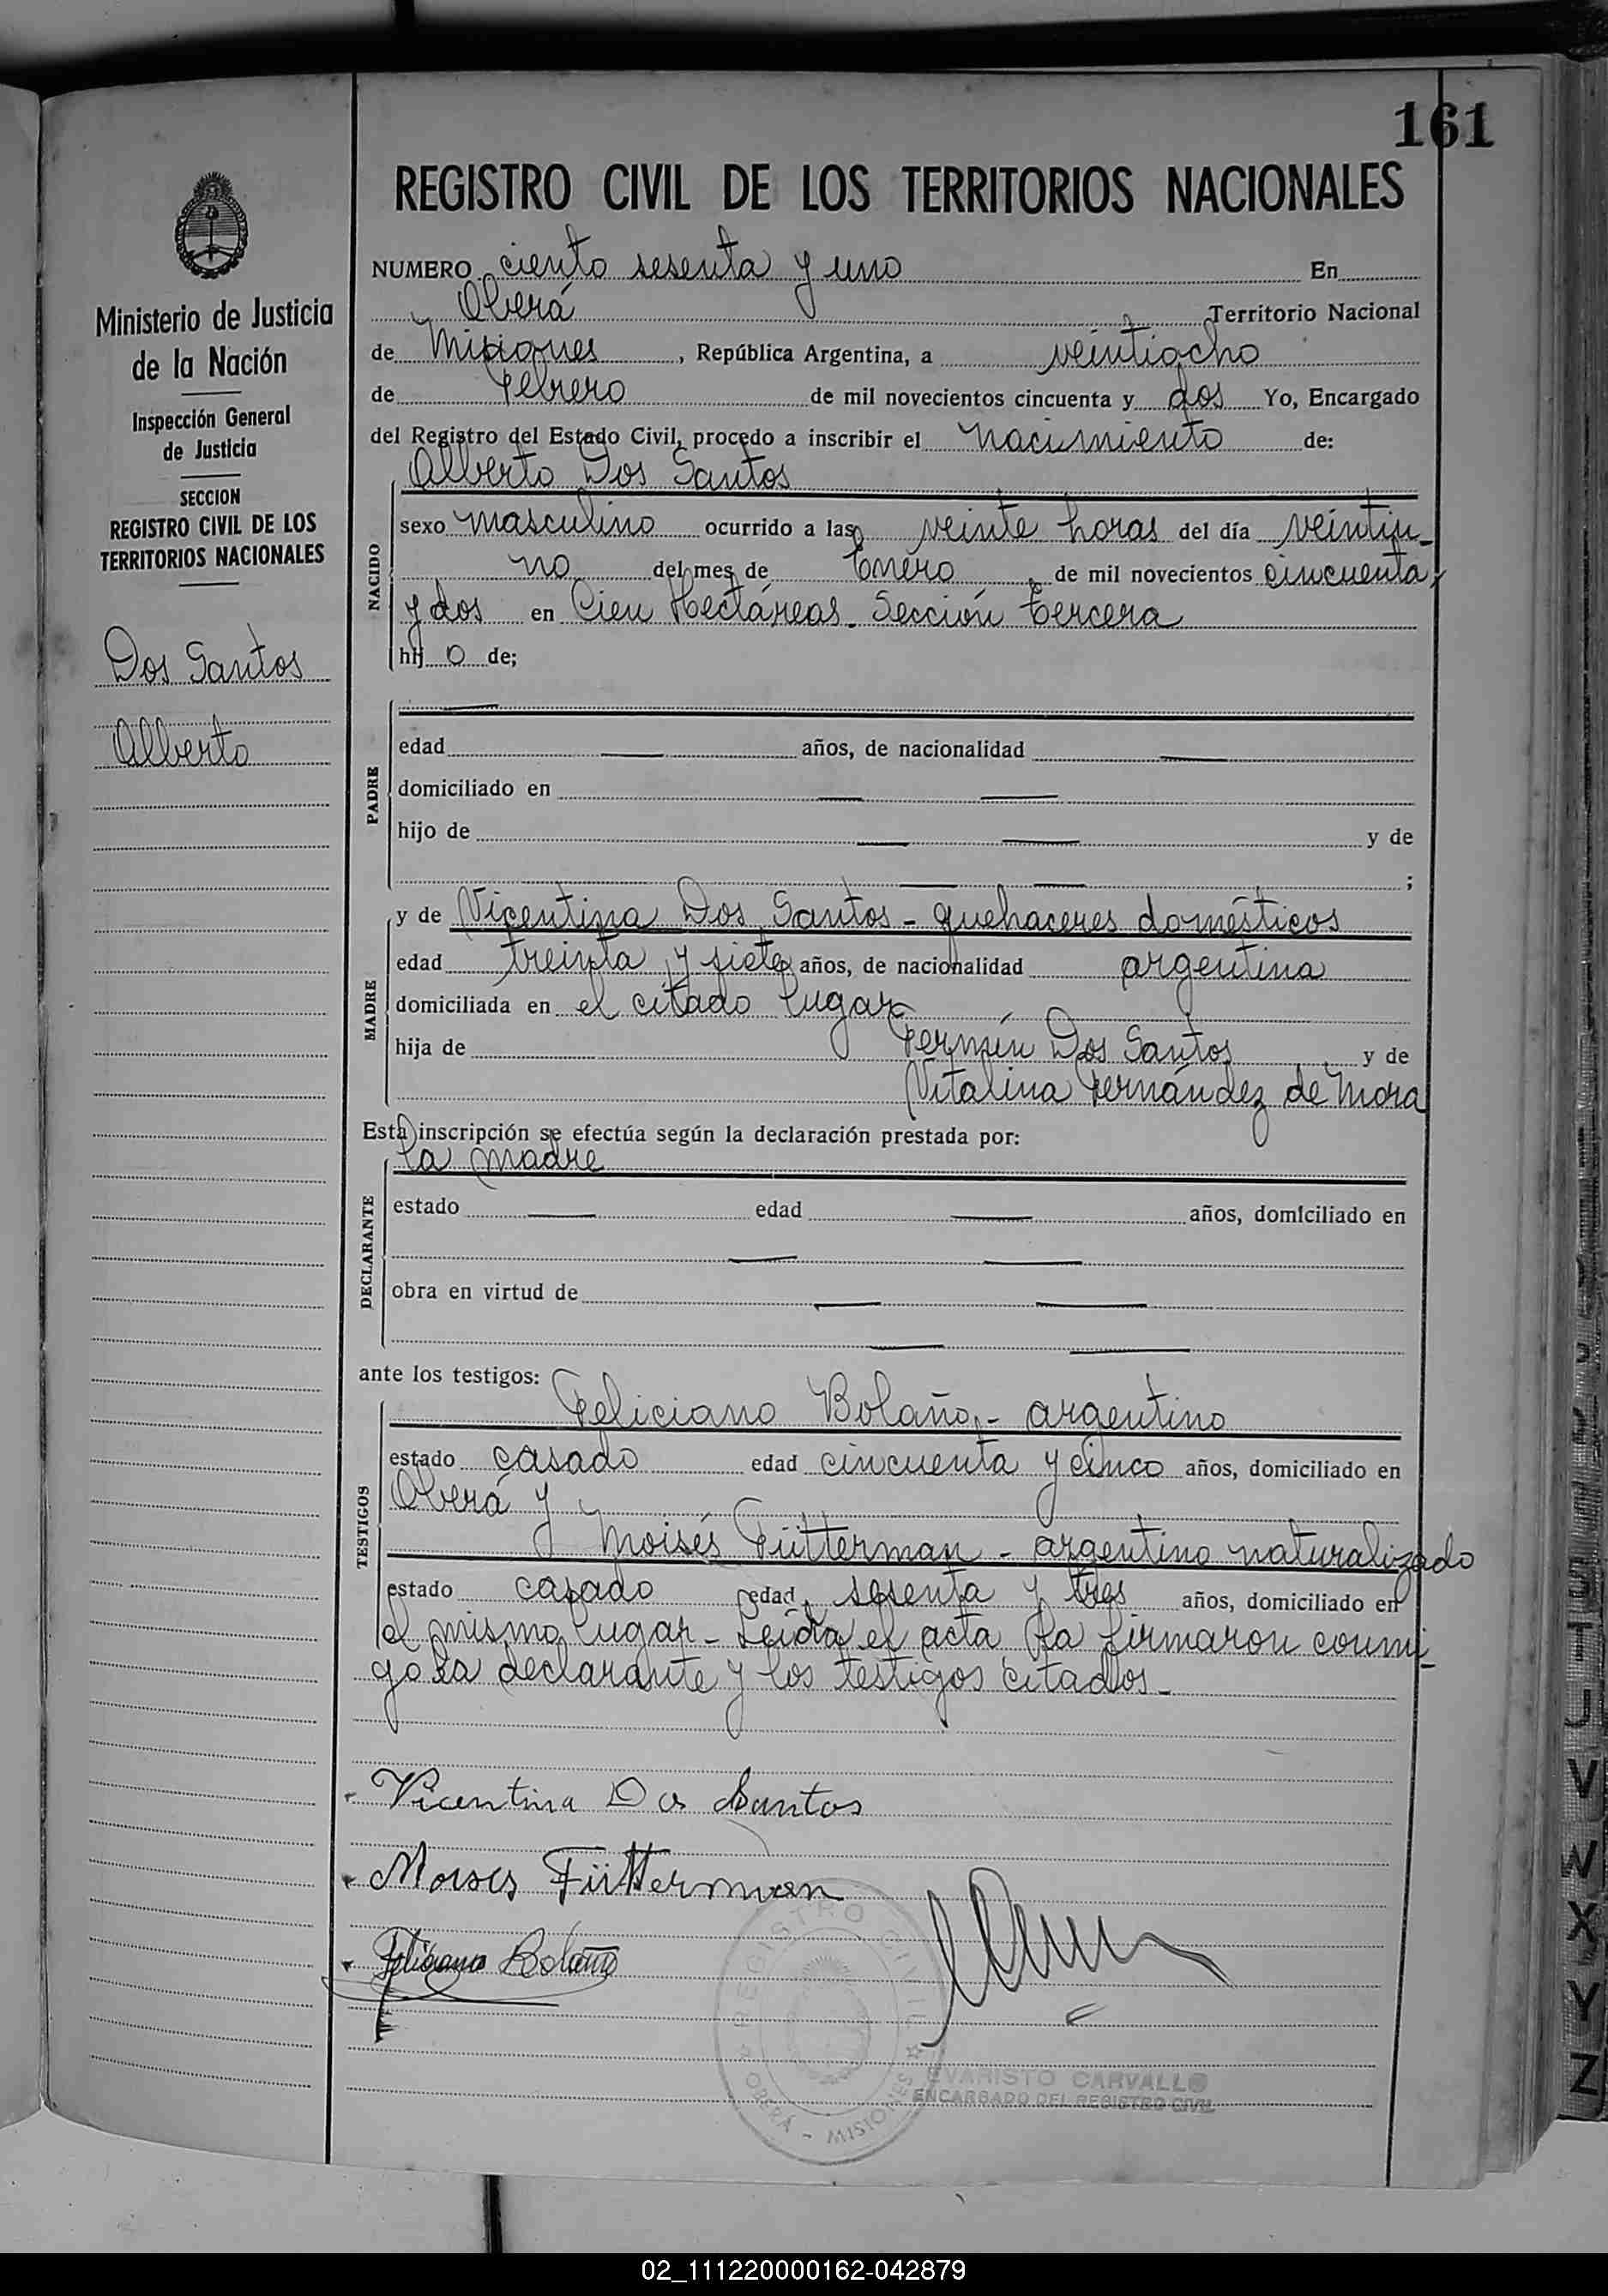 161
REGISTRO CIVIL DE LOS TERRITORIOS NACIONALES
Ministerio de Justicia
de la Nación
Inspección General
de Justicia
SECCION
REGISTRO CIVIL DE LOS
TERRITORIOS NACIONALES
Dos Santos
Alberto
NUMERO ciento sesenta y uno En
Oberá Territorio Nacional
de Misiones, República Argentina, a veintiocho
de Febrero de mil novecientos cincuenta y dos Yo, Encargado
del Registro del Estado Civil, procedo a inscribir el nacimiento de:
Alberto Dos Santos
NACIDO
sexo masculino ocurrido a las veinte horas del día veintiu-
no del mes de Enero de mil novecientos cincuenta
y dos en Cien Hectáreas. Sección tercera
hij o de;
PADRE
edad años, de nacionalidad
domiciliado en
hijo de y de
;
MADRE
y de Vicentina Dos Santos - quehaceres domésticos
edad treinta y siete años, de nacionalidad argentina
domiciliada en el citado lugar
hija de Fermín Dos Santos y de
Vitalina Fernández de Mora
Esta inscripción se efectúa según la declaración prestada por:
la madre
DECLARANTE
estado edad años, domiciliado en
obra en virtud de
ante los testigos:
TESTIGOS
Feliciano Bolaño, - argentino
estado casado edad cincuenta y cinco años, domiciliado en
Oberá y
Moisés Fütterman - argentino naturalizado
estado casado edad sesenta y tres años, domiciliado en
el mismo lugar - Leída el acta la firmaron conmi-
go la declarante y los testigos citados -
Vicentina Do Santos
Moises Fütterman
Feliciano Bolaño
REGISTRO CIVIL
OBERÁ - MISIONES
EVARISTO CARVALLO
ENCARGADO DEL REGISTRO CIVIL
T
U
V
W
X
Y
Z
02_111220000162-042879